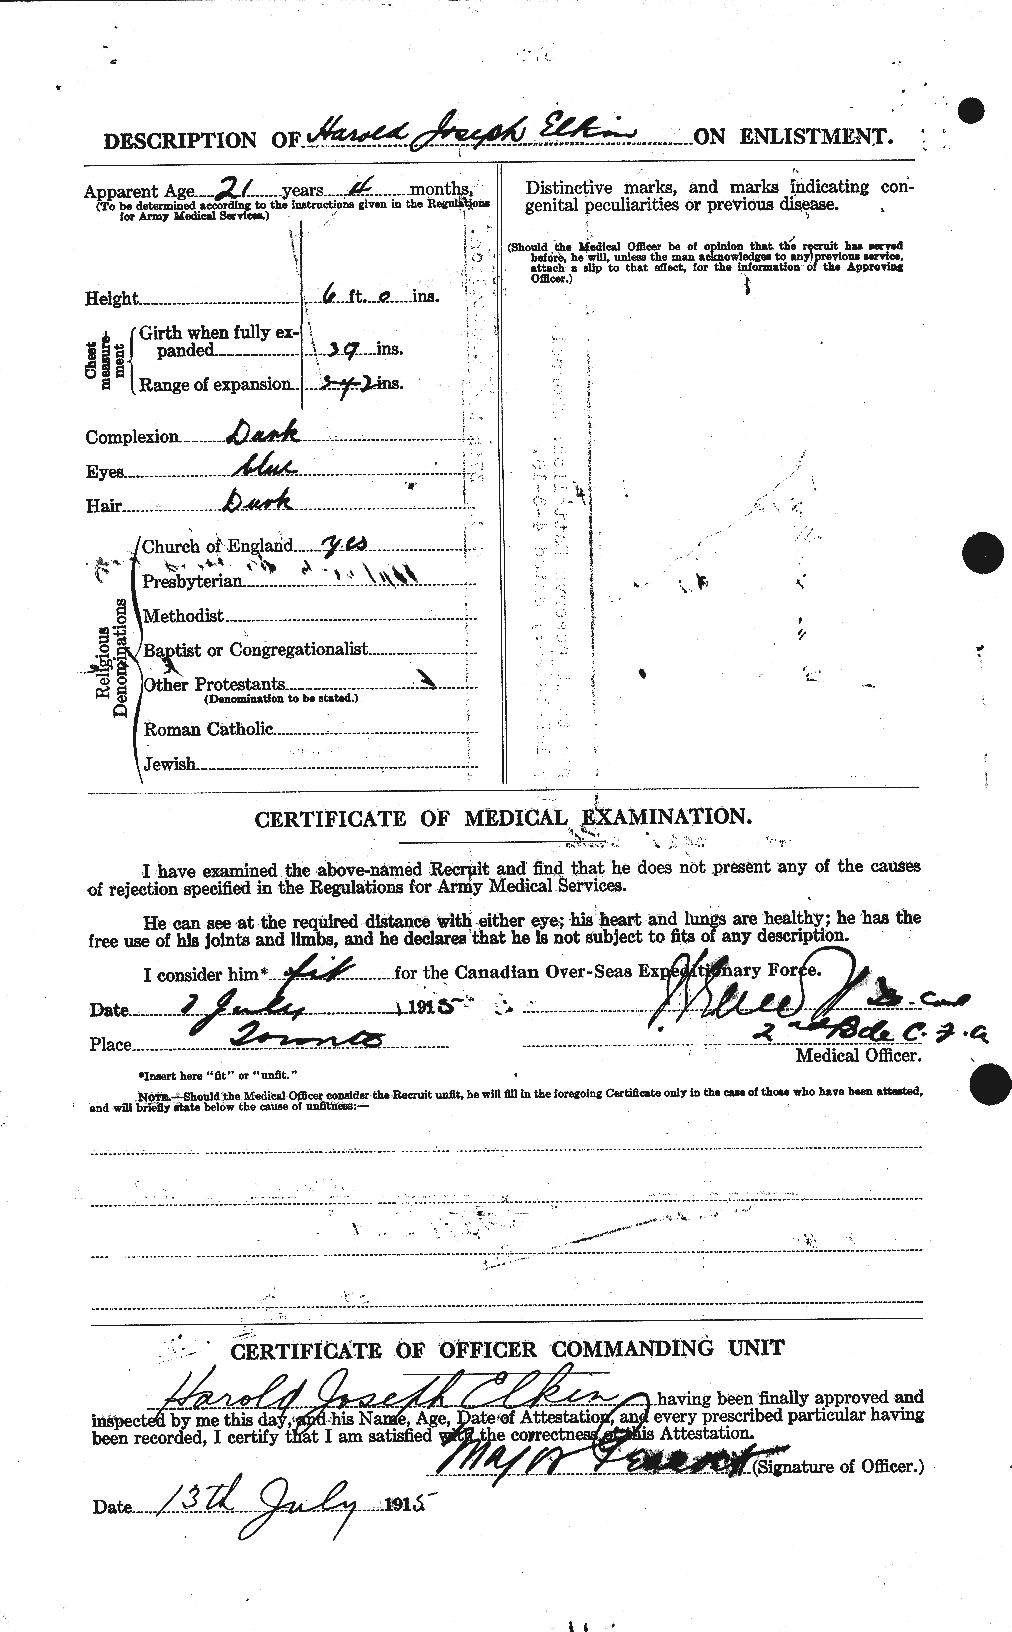 DESCRIPTION OF Harold Joseph Elkin ON ENLISTMENT.
Apparent Age 21 years 4 months.
(To be determined according to the instructions given in the Regulations
for Army Medical Services.)
Height 6 ft. 0 ins.
Chest measurement
Girth when fully ex-
panded 39 ins.
Range of expansion ins.
Complexion Dark
Eyes blue
Hair Dark
Religious Denominations
Church of England yes
Presbyterian
Methodist
Baptist or Congregationalist
Other Protestants
(Denomination to be stated.)
Roman Catholic
Jewish
Distinctive marks, and marks indicating con-
genital peculiarities or previous disease.
(Should the Medical Officer be of opinion that the recruit has served
before, he will, unless the man acknowledges to any previous service,
attach a slip to that effect, for the information of the Approving
Officer.)
CERTIFICATE OF MEDICAL EXAMINATION.
I have examined the above-named Recruit and find that he does not present any of the causes
of rejection specified in the Regulations for Army Medical Services.
He can see at the required distance with either eye; his heart and lungs are healthy; he has the
free use of his joints and limbs, and he declares that he is not subject to fits of any description.
I consider him* fit for the Canadian Over-Seas Expeditionary Force.
Date 7 July 1915
Place Toronto
2nd Bde C.F.A
Medical Officer.
*Insert here "fit" or "unfit."
NOTE.—Should the Medical Officer consider the Recruit unfit, he will fill in the foregoing Certificate only in the case of those who have been attested,
and will briefly state below the cause of unfitness:—
CERTIFICATE OF OFFICER COMMANDING UNIT
Harold Joseph Elkin having been finally approved and
inspected by me this day, and his Name, Age, Date of Attestation, and every prescribed particular having
been recorded, I certify that I am satisfied with the correctness of this Attestation.
Major (Signature of Officer.)
Date 13th July 1915